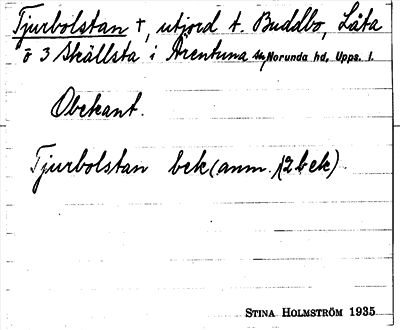 Tjurbolstan †, utjord t. Buddbo, Låta
o 3 Skällsta i Ärentuna sn, Norunda hd, Upps. l.
Obekant.
Tjurbolstan bek (anm. 12 bek)
STINA HOLMSTRÖM 1935